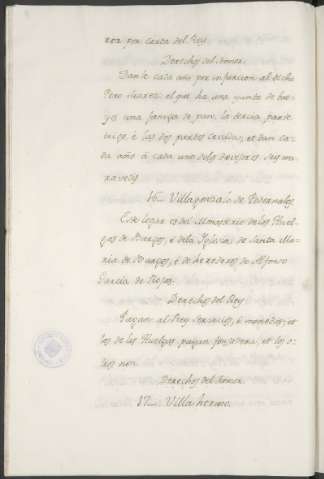 nos por carta del Rey.
Derechos del Señor.
Danle cada año por infurcion al dicho
Pero Suarez: el que ha una yunta de bue-
yes una fanega de pan, la tercia parte
trigo, è las dos partes cevada, et dan ca-
da año à cada uno solo devisero seys ma-
ravedis.
16.. Villagonzalo de Pedernales.
Este logar es del Monasterio de las Huel-
gas de Burgos, è dela Iglesia de Santa Ma-
ria de Burgos, è de herederos de Alfonso
Garcia de Rojas.
Derechos del Rey
Pagan al Rey servicios, è monedas, et
los de las Huelgas pagan fonsadera, et los o-
tros non.
Derechos del Señor.
17.. Villa